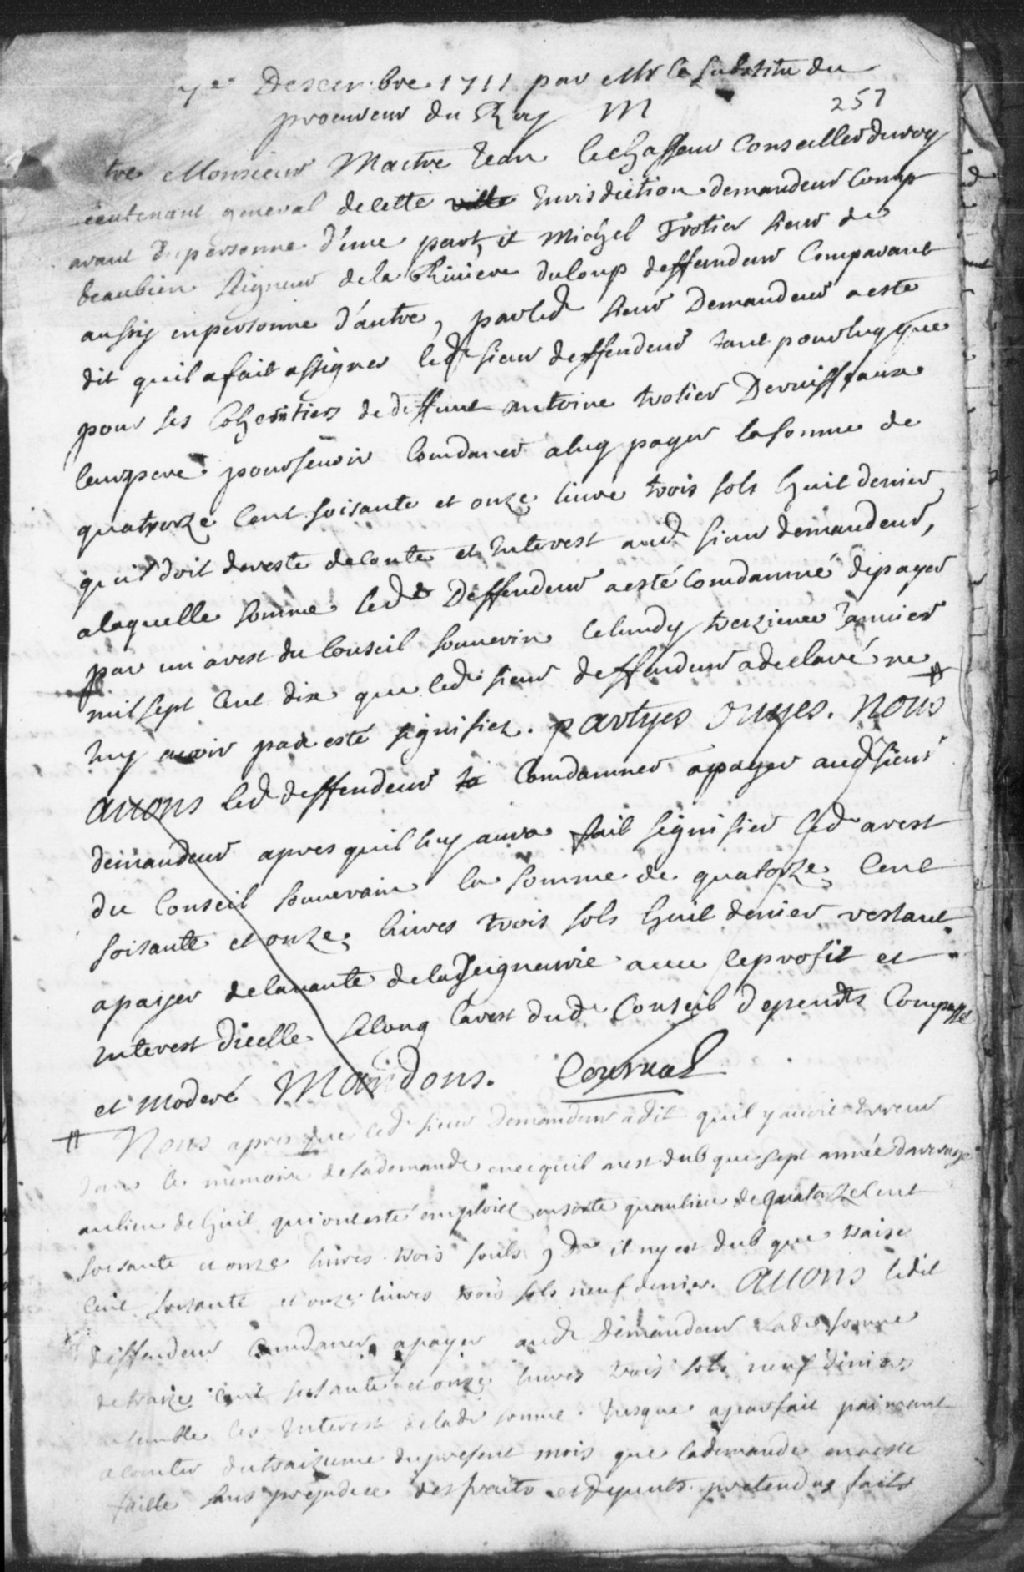 7e Descembre 1711 par Mr le substitu du
procureur du Roy M
257
tre Monsieur Maitre Jean lechasseur Conseiller du roy
lieutenant general de cette Jurisdiction demandeur Comp
arant En personne d'une part, et Michel Trotier sieur de
beaubien seigneur de la Riviere du loup deffendeur Comparant
aussy en personne d'autre, par led. sieur Demandeur a este
dit quil a fait assigner led. sieur deffendeur tant pour luy que
pour ses Coheritiers de deffunt antoine trotier Deruisseaux
leur pere pour se voir Comdaner a luy payer la somme de
quatorze Cent soisante et onze livre trois sols huit denier
qu'il doit de reste de conte et Interest aud. sieur demandeur,
a laquelle somme led. Deffendeur a esté Comdamné de payer
par un arest du Conseil souverin le lundy treizieme Janvier
mil sept Cent dix que led. sieur deffendeur a declaré ne
luy avoir pas esté signifiez. partyes ouyes. Nous #
avons led. deffendeur Comdamner a payer aud. sieur
demandeur apres quil luy aura fait signifier led. arest
du Conseil souverain la somme de quatorze Cent
soisante et onze livres trois sols huit denier restant
a payer de la vante de la seigneurie avec le profit et
interest d'icelle selong l'arest dud. Conseil depends Compassé
et moderé Mandons. Courval
# Nous apres que led. sieur Demandeur a dit quil y avoit erreur
dans le memoire de sa demande en ce quil n'est dub que sept année d'arerage
au lieu de huit qui ont esté emploiée en sorte quau lieu de quatorze Cent
soisante et onze livres trois souls 9 d. il n'y est dub que traise
Cent soisante et onze livres trois sols neuf denier. avons ledit
deffendeur Comdamner a payer aud. Demandeur lad. somme
de traize Cent soisante et onze livres trois sols neuf deniers
ensemble les Interest de lad. somme Jusque a parfait paimant
a conter du traizieme du present mois que la demande en a esté
faitte sans prejudice des fraits et depents pretendus faits